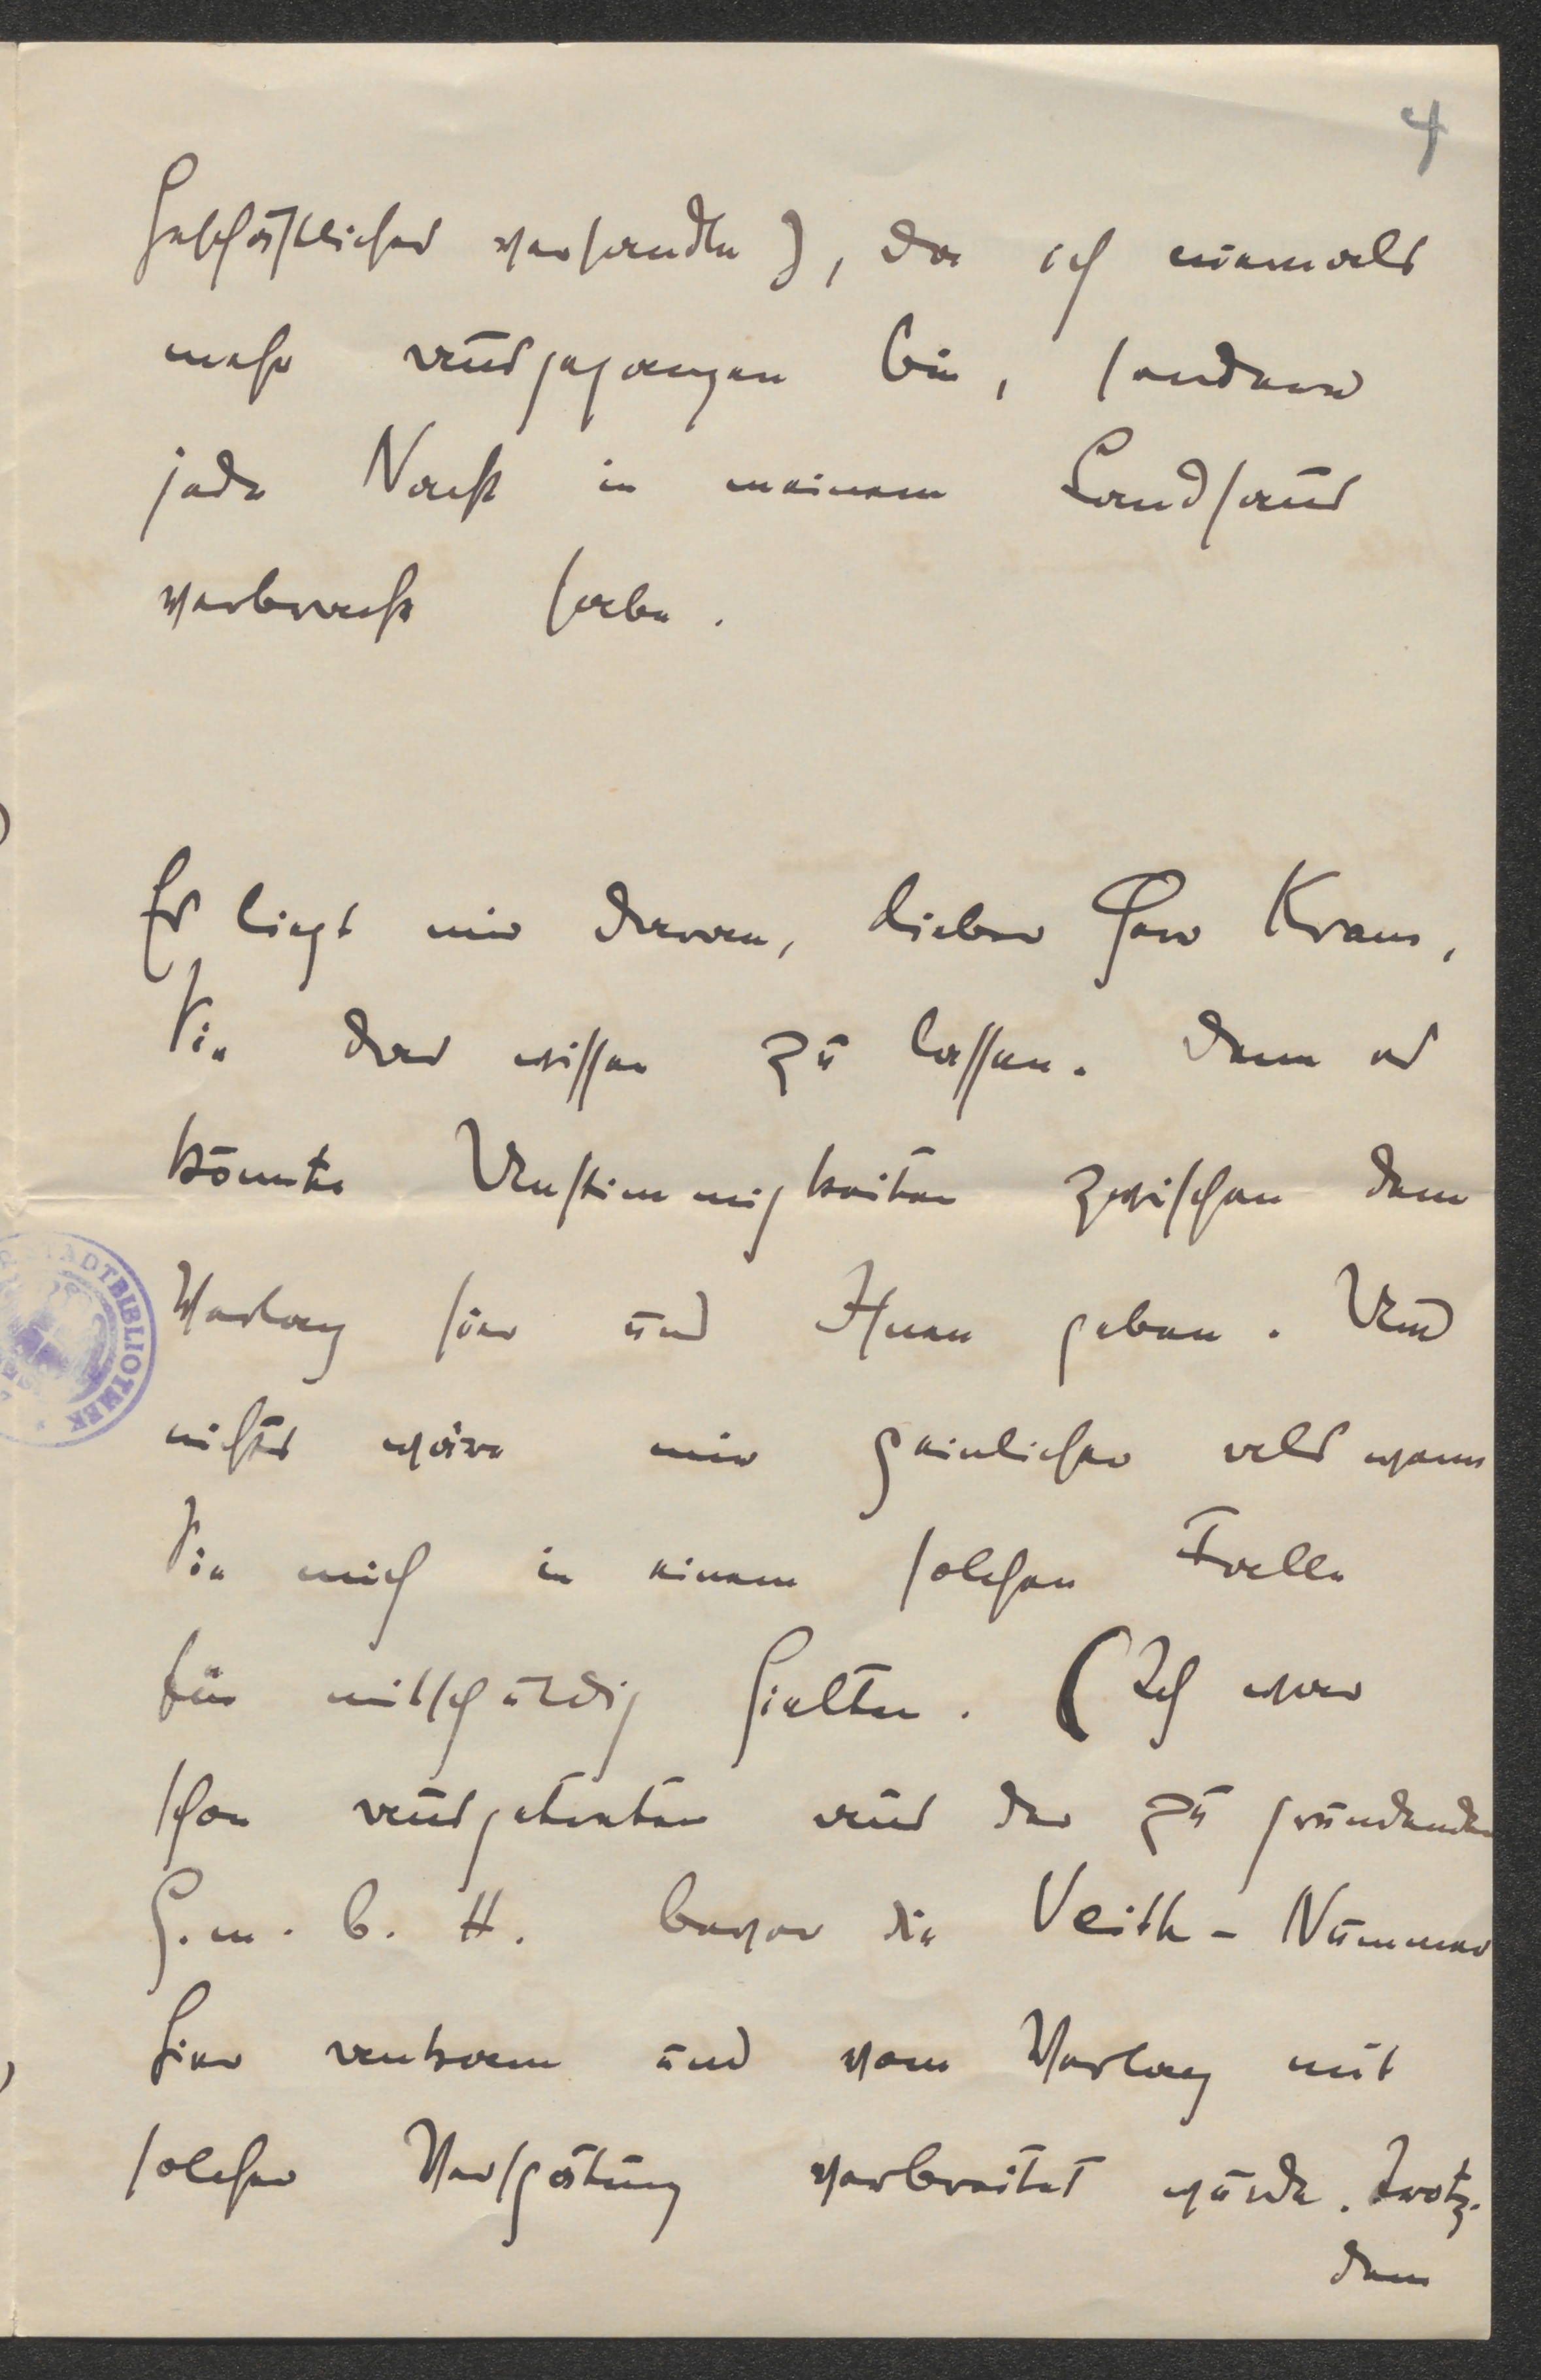 4
Geschäftliches verhandle), da ich niemals
mehr ausgegangen bin, sondern
jede Nacht in meinem Landhaus
verbracht habe.
Es liegt mir daran, lieber Herr Kraus,
Sie das wissen zu lassen. Denn es
könnte Unstimmigkeiten zwischen dem
Verlag hier und Ihnen geben. Und
nichts wäre mir peinlicher als wenn
Sie mich in einem solchen Falle
für mitschuldig hielten. (Ich war
schon ausgetreten aus der zu gründenden
G.m.b.H. bevor die Veith-Nummer
hier ankam und vom Verlag mit
solcher Verspätung verbreitet würde. Trotz-
dem
STADTBIBLIOTHEK